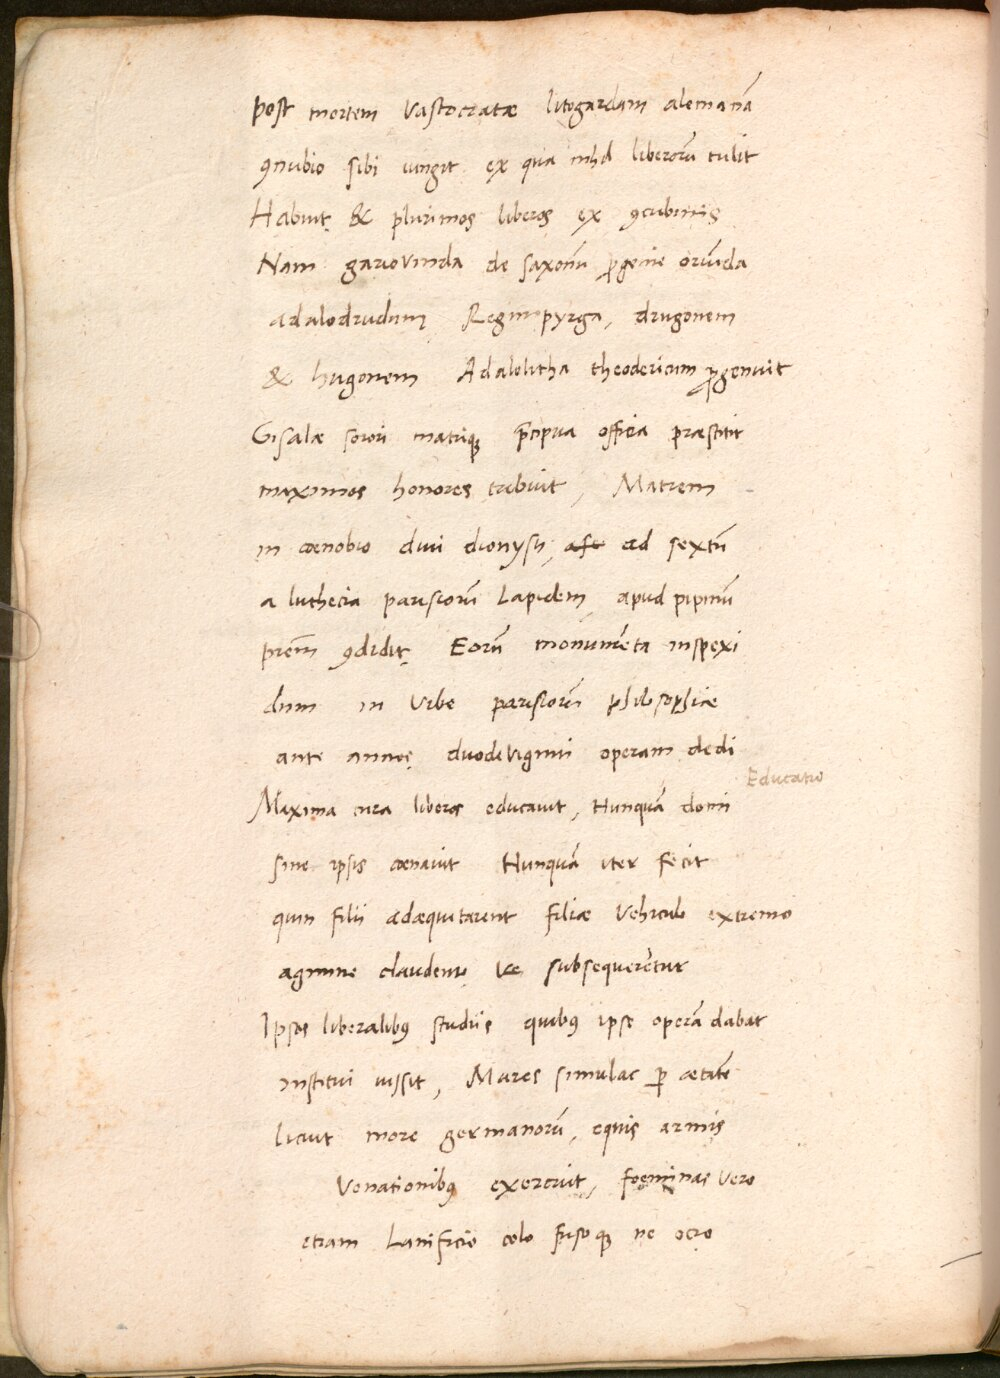 post mortem Vastocratæ litogardam alemanā
ꝯnubio sibi iungit ex qua nihil liberorū tulit
Habuit & plurimos liberos ex ꝯcubinis
Nam gariovinda de saxonū ꝓgenie oriūda
adalodrudam Reginopyrga, drugonem
& hugonem Adalolitha theodericum ꝓgenuit
Gisalæ sorori matriqꝫ p̄cipua officia præstitit
maximos honores tribuit, Matrem
in cœnobio divi dionysii, ad sextū
a luthecia parisiorū Lapidem, apud pipinū
prēm ꝯdidit Eorū monumēta inspexi
dum in Vrbe parisiorū philosophiæ
ante annos duodeviginti operam dedi
Educatio
Maxima cura liberos educavit, Nunquā domi
sine ipsis cœnavit Nunquā iter fecit
quin filii adæquitarent filiæ Vehiculo extremo
agmine claudento subsequerētur
Ipsos liberalibꝰ studiis quibꝰ ipse operā dabat
institui iussit, Mares simulac ꝑ ætatē
licuit more germanorū, equis armis
Venationibꝰ exercuit, foeminas Vero
etiam Lanificio colo fusoqꝫ ne ocio